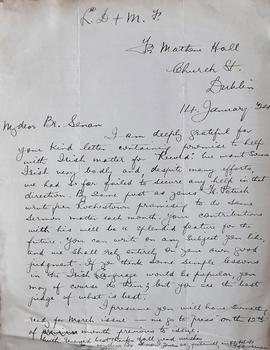 L. D + M. F.
Fr Mathew Hall
Church St.
Dublin
14. January
My dear Br. Senan
I am deeply grateful for
your kind letter containing promise to help
with Irish matter for "Record." We want some
Irish very badly, and despite many efforts
we had so far failed to secure any help in that
direction. By same post as yours Fr. Patrick
writes from Rochestown promising to do some
sermon matter each month. Your contributions
with his will be a splendid feature for the
future. You can write on any subject you like
and we shall rely entirely on your own good
judgment. If you think some simple lessons
in the Irish language would be popular, you
may of course do them; but you are the best
judge of what is best.
I presume you will have something
ready for March issue. We go to press on the 12th of
month previous to issue.
With kindest good wishes